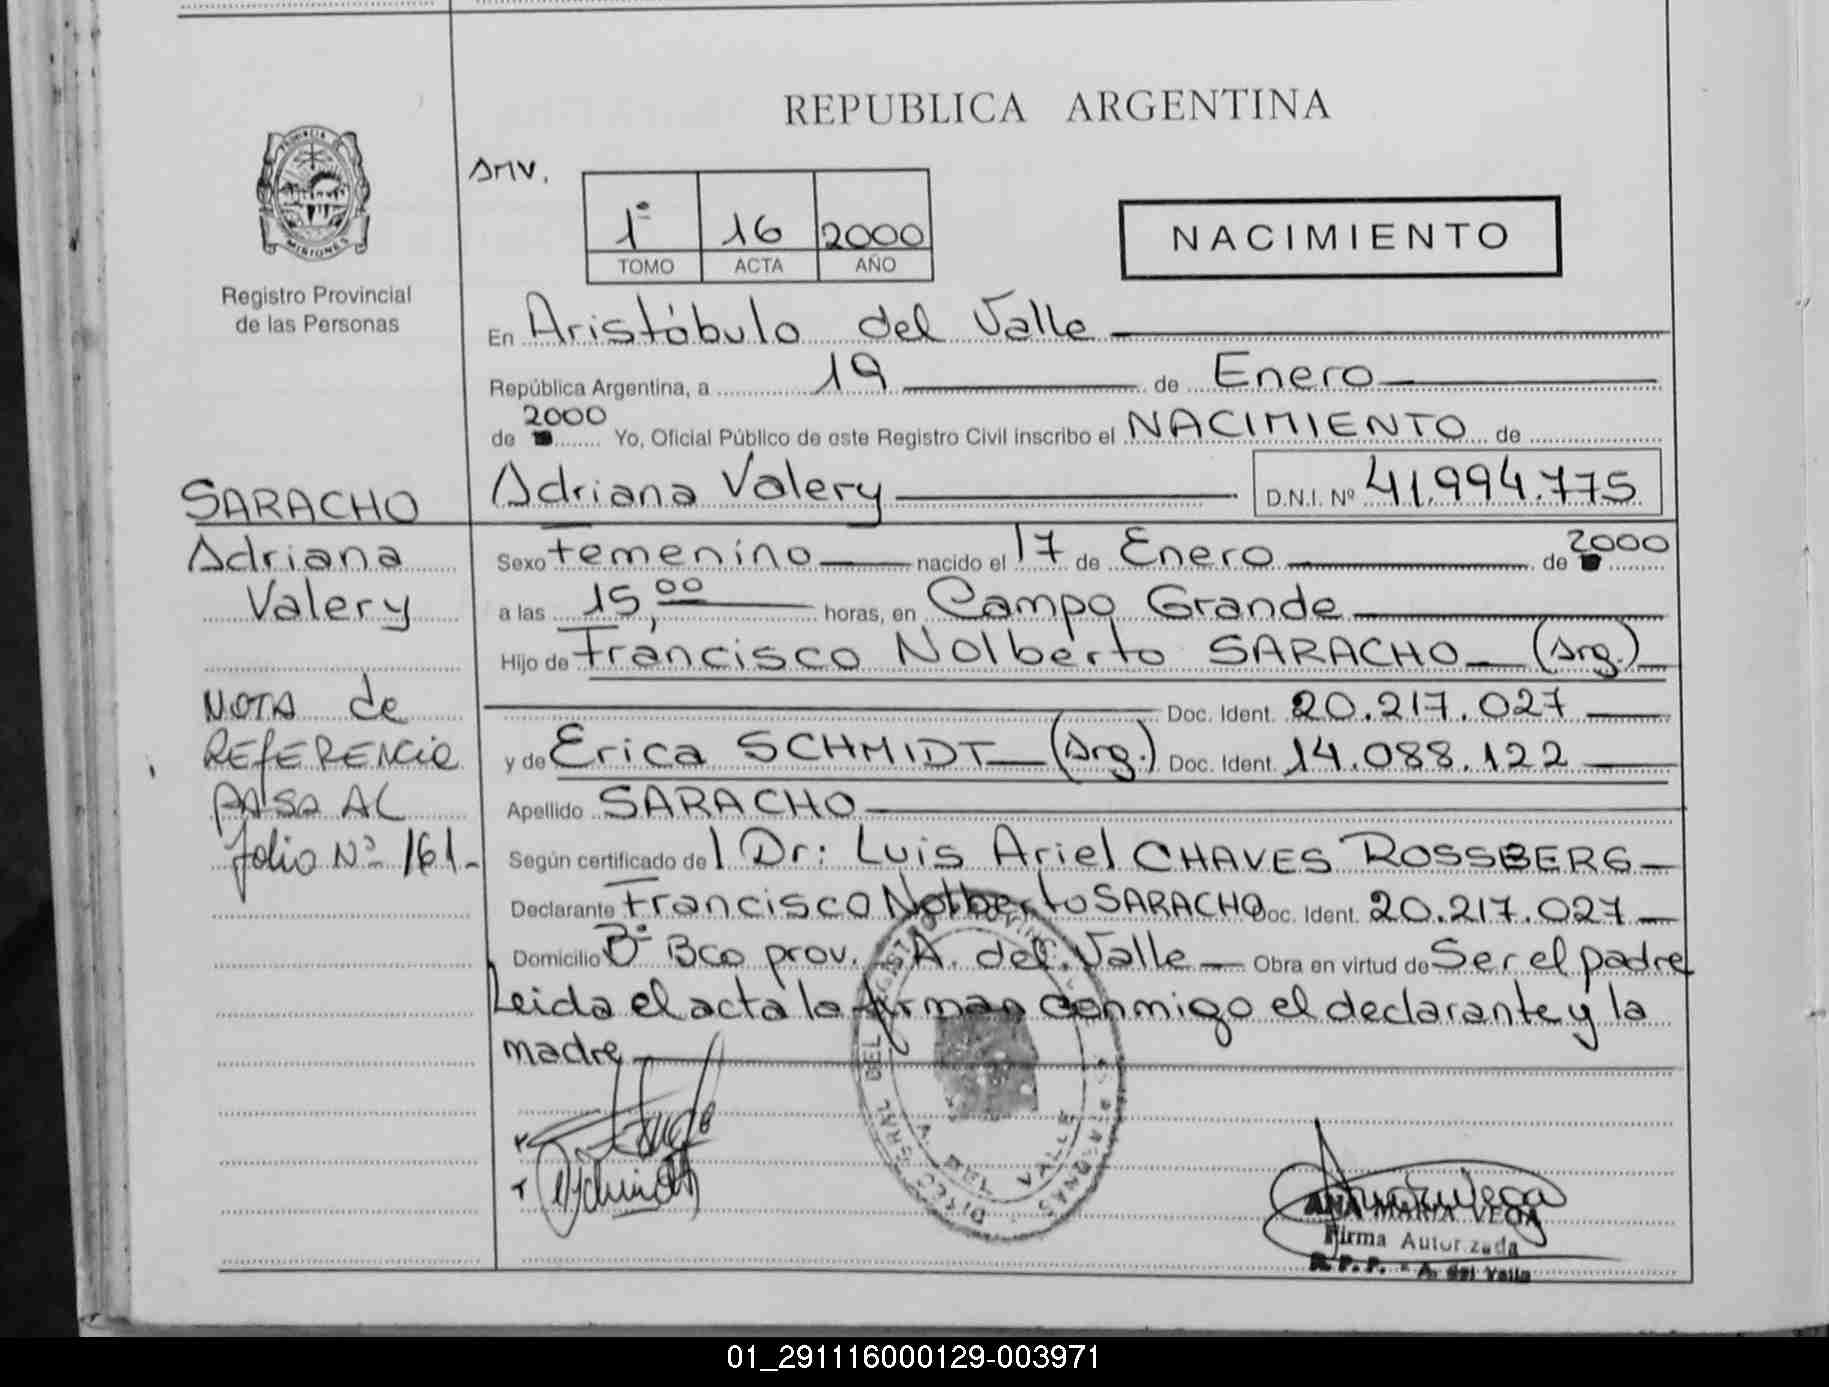 REPUBLICA ARGENTINA
PROVINCIA
MISIONES
Registro Provincial
de las Personas
AMV.
1º 16 2000
TOMO ACTA AÑO
NACIMIENTO
En Aristóbulo del Valle
República Argentina, a 19 de Enero
de 2000 Yo, Oficial Público de este Registro Civil inscribo el NACIMIENTO de
Adriana Valery D.N.I. Nº 41.994.775
Sexo Femenino nacido el 17 de Enero de 2000
a las 15,00 horas, en Campo Grande
Hijo de Francisco Nolberto SARACHO (Arg.)
Doc. Ident. 20.217.027
y de Erica SCHMIDT (Arg.) Doc. Ident. 14.088.122
Apellido SARACHO
Según certificado del Dr: Luis Ariel CHAVES ROSSBERG
Declarante Francisco Nolberto SARACHO Doc. Ident. 20.217.027
Domicilio Bº Bco prov. A. del Valle Obra en virtud de Ser el padre
Leida el acta la firman conmigo el declarante y la
madre
SARACHO
Adriana
Valery
NOTA de
REFERENCIA
PASA AL
folio Nº 161-
ANA MARIA VEGA
Firma Autorizada
R.P.P. - A. del Valle
01_291116000129-003971